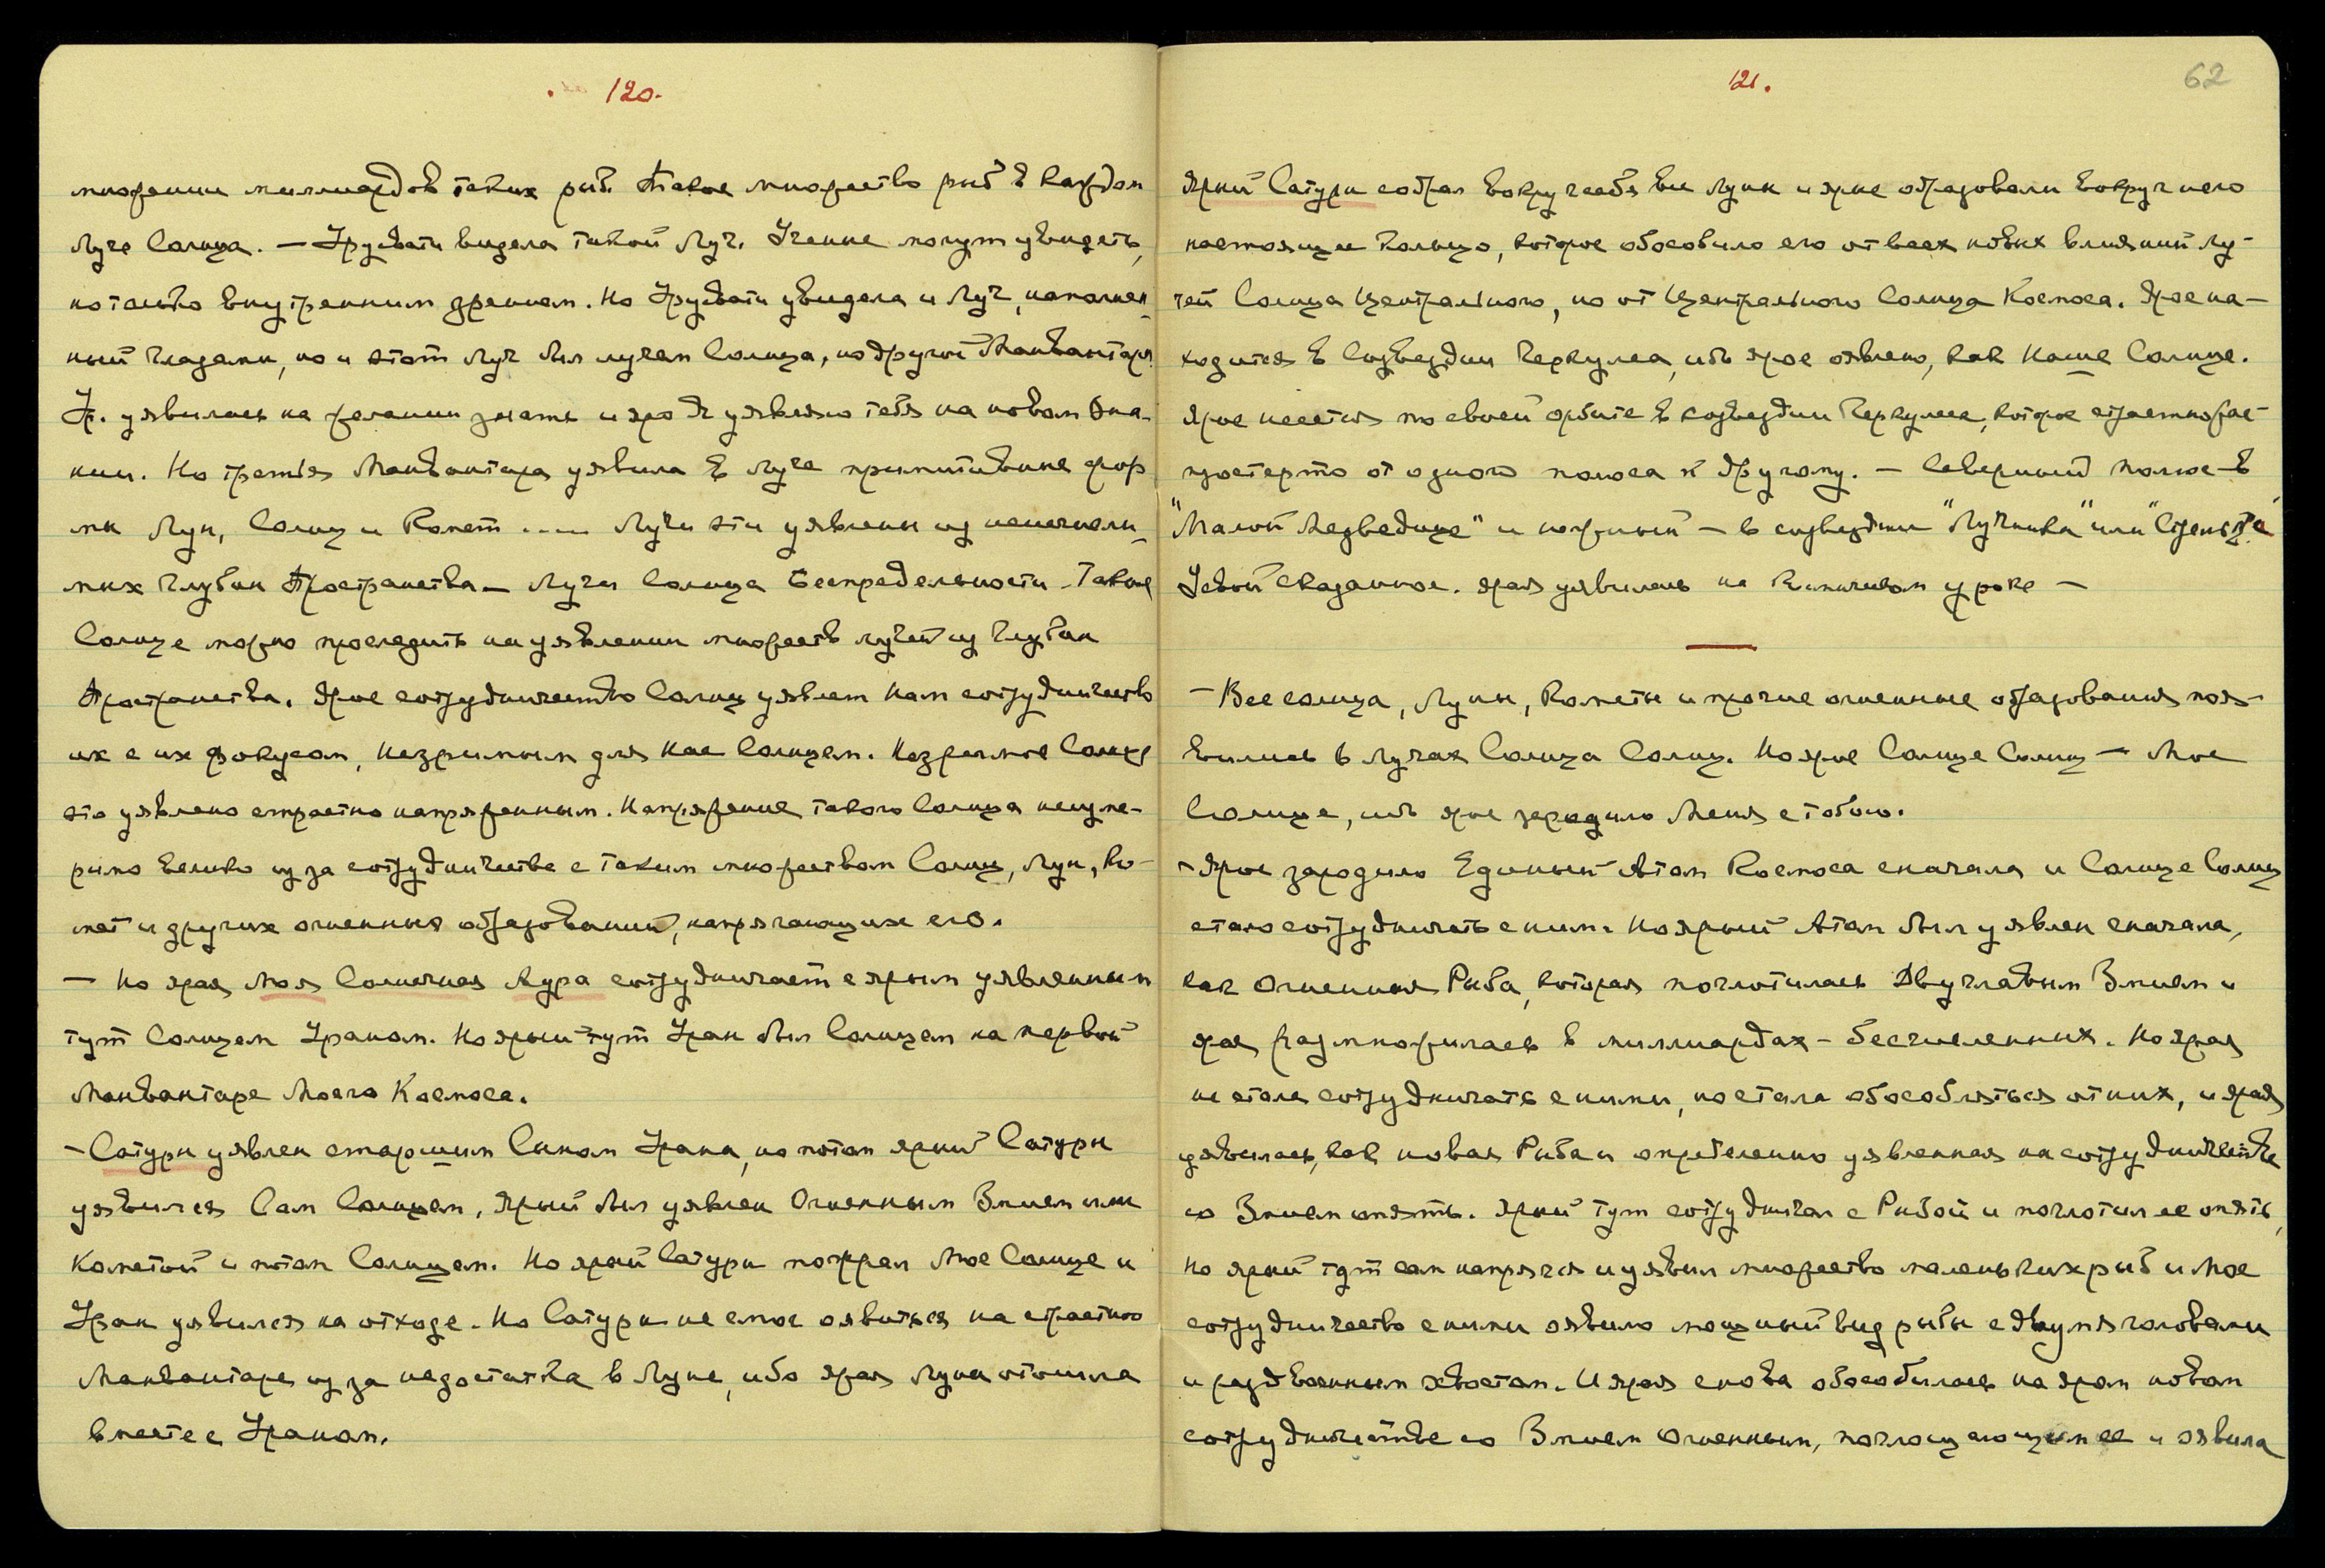 120.
множении миллиардов таких рыб. Такое множество рыб в каждом
Луче Солнца. — Урусвати видела такой Луч. Ученые могут увидеть,
но только внутренним зрением. Но Урусвати увидела и Луч, наполнен-
ный Глазами, но и этот Луч был лучем Солнца, но другой Манвантары.
Ур. уявилась на желании знать и яро Я уявляю тебя на новом Зна-
нии. Но третья Манвантара уявила в Луче примитивные фор-
мы Лун, Солнц и Комет .... Лучи эти уявлены из неисчисли-
мых Глубин Пространства — Лучи Солнца Беспредельности. Такое
Солнце можно проследить на уявлении множеств лучей из Глубин
Пространства. Ярое сотрудничество Солнц уявляет нам сотрудничество
их с их фокусом, Незримым для Нас Солнцем. Незримое Солнце
это уявлено страстно напряженным. Напряжение такого Солнца неизме-
римо велико из за сотрудничества с таким множеством Солнц, Лун, Ко-
мет и других огненных образований, напрягающих его.
— Но ярая Моя Солнечная Аура сотрудничает с ярым уявленным
тут Солнцем Ураном. Но ярый тут Уран был Солнцем на первой
Манвантаре Моего Космоса.
— Сатурн уявлен старшим Сыном Урана, но потом ярый Сатурн
уявился Сам Солнцем, Ярый был уявлен Огненным Змием или
Кометой и потом Солнцем. Но ярый Сатурн пожрал Мое Солнце и
Уран уявился на отходе. Но Сатурн не смог оявиться на страстной
Манвантаре из за недостатка в Луне, ибо ярая Луна отошла
вместе с Ураном.
121.
62
Ярый Сатурн собрал вокруг себя все Луны и ярые образовали вокруг него
настоящее Кольцо, которое обособило его от всех новых влияний Лу-
чей Солнца Центрального, но от Центрального Солнца Космоса. Ярое на-
ходится в Созвездии Геркулеса, ибо ярое оявлено, как Наше Солнце.
Ярое несется по своей орбите в созвездии Геркулеса, которое страстно
простерто от одного полюса к другому. — Северный полюс — в
"Малой Медведице" и южный — в созвездии "Лучника" или "Стрельца"
Тобой сказанное. Ярая уявилась на
—
— Все солнца, Луны, Кометы и прочие огненные образования поя-
вились в Лучах Солнца Солнц. Но ярое Солнце Солнц — Мое
Солнце, ибо ярое зародило Меня с тобою.
— Ярое зародило Единый Атом Космоса сначала и Солнце Солнц
стало сотрудничать с ним. Но ярый Атом был уявлен сначала,
как Огненная Рыба, которая поглотилась Двуглавым Змием и
ярая размножилась в миллиардах — бесчисленных. Но ярая
не стала сотрудничать с ними, но стала обособляться от них, и ярая
уявилась, как новая Рыба и определенно уявленная на сотрудничестве
со Змием опять. Ярый тут сотрудничал с Рыбой и поглотил ее опять,
Но ярый тут сам напрягся и уявил множество маленьких рыб и Мое
сотрудничество с ними оявило мощный вид рыбы с двумя головами
и раздвоенным хвостом. И ярая снова обособилась на яром новом
сотрудничестве со Змием Огненным, поглощающим ее и оявила